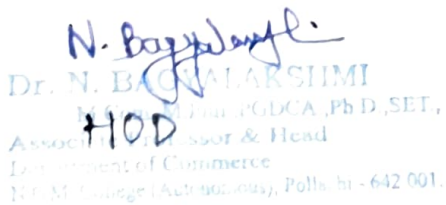 N. Bagyalakshmi
Dr. N. BAGYALAKSHMI
M.Com., M.Phil., PGDCA.,Ph.D.,SET.,
HOD
Associate Professor & Head
Department of Commerce
N.G.M. College (Autonomous), Pollachi - 642 001.